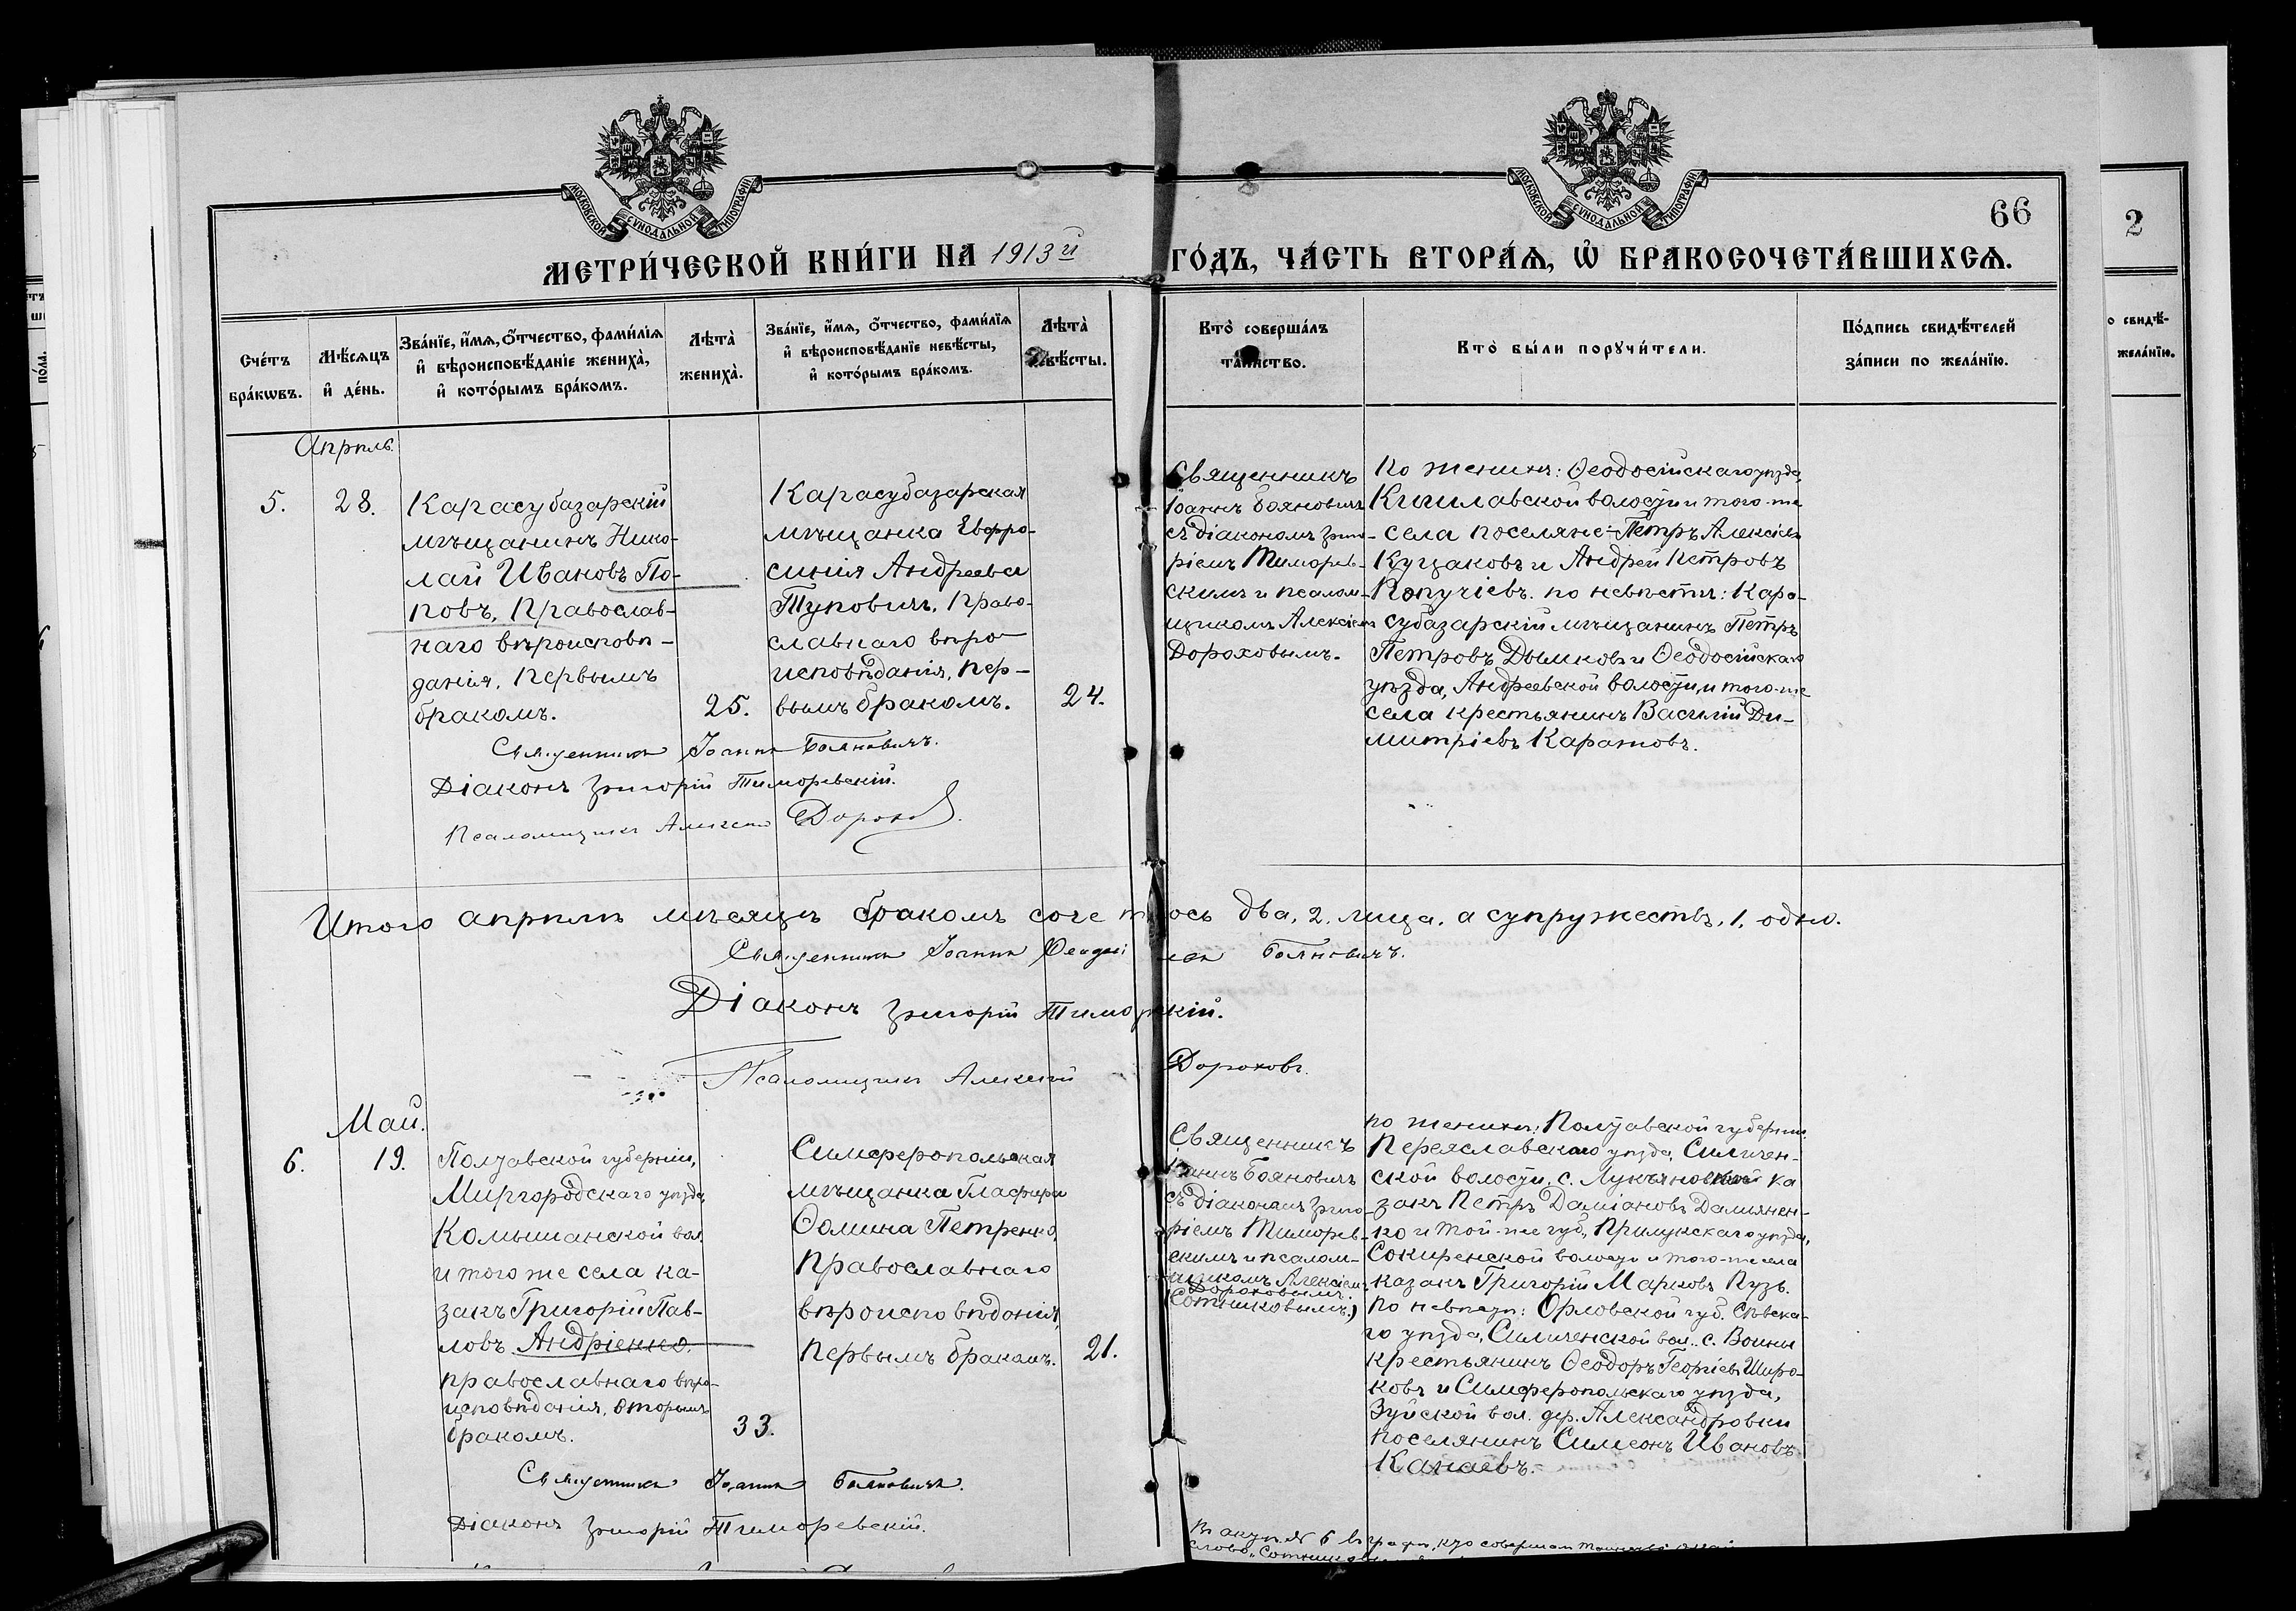 МОСКОВСКОЙ СѴНОДАЛЬНОЙ ТИПОГРАФІИ
МОСКОВСКОЙ СѴНОДАЛЬНОЙ ТИПОГРАФІИ
66
2
МЕТРИ́ЧЕСКОЙ КНИ́ГИ НА 1913й
ГО́ДЪ, ЧА́СТЬ ВТОРА́Я, Ѡ҆ БРАКОСОЧЕТА́ВШИХСЯ.
Сче́тъ
бра́кѡвъ.
Мѣ́сяцъ
и҆ де́нь.
Зва́нїе, и҆́мя, ѻ҆́тчество, фами́лїя
и҆ вѣроисповѣ́данїе жениха̀,
и҆ кото́рымъ бра́комъ.
Лѣта̀
жениха̀.
Зва́нїе, и҆́мя, ѻ҆́тчество, фами́лїя
и҆ вѣроисповѣ́данїе невѣ́сты,
и҆ кото́рымъ бра́комъ.
Лѣта̀
невѣ́сты.
Кто̀ соверша́лъ
та́инство.
Кто̀ бы́ли порꙋчи́тели.
По́дпись свидѣ́телей
за́писи по жела́нїю.
Апрѣль.
5.
28.
Карасубазарскій
мѣщанинъ Нико-
лай Ивановъ По-
повъ, Православ-
наго вѣроисповѣ-
данія, Первымъ
бракомъ.
25.
Карасубазарская
мѣщанка Евфро-
синія Андреева
Туповичъ, Право-
славнаго вѣро
исповѣданія, пер-
вымъ бракомъ.
24.
Священникъ
Іоаннъ Бояновичъ
съ діакономъ Григо-
ріемъ Тиморев-
скимъ и псалом-
щикомъ Алексіемъ
Дороховымъ.
По женихѣ: Ѳеодосійскаго уѣзда,
Кишлавской волости и того-же
села поселяне: Петръ Алексіевъ
Куцаковъ и Андрей Петровъ
Копучіевъ. по невѣстѣ: Кара-
субазарскій мѣщанинъ Петръ
Петровъ Дымковъ и Ѳеодосійскаго
уѣзда, Андреевской волости, и того-же
села крестьянинъ Василій Ди-
митріевъ Каратовъ.
Священникъ Іоаннъ Бояновичъ.
Діаконъ Григорій Тиморевскій.
Псаломщикъ Алексій Дорохов.
Итого апрѣлѣ мѣсяцѣ бракомъ соче ось два, 2. лица. а супружествъ, 1. одно.
Священникъ Іоаннъ Бояновичъ.
Діаконъ Григорій Тимо кій.
Псаломщикъ Алексій Дороховъ.
Май.
6.
19.
Полтавской губерніи,
Миргородскаго уѣзда
Комышанской вол.
и того же села ка-
закъ Григорій Пав-
ловъ Андріенко.
православнаго вѣро-
исповѣданія, вторымъ
бракомъ.
33.
Симферопольская
мѣщанка Глафира
Ѳомина Петренко,
Православнаго
вѣроисповѣданія,
Первымъ бракомъ.
21.
Священникъ
Іоаннъ Бояновичъ
съ діакономъ Григо-
ріемъ Тиморев-
скимъ и псалом-
щикомъ Алексіемъ
Дороховымъ.
(Сотниковымъ)
по женихѣ: Полтавской губерніи
Переяславскаго уѣзда, Сили­чен-
ской волости, с. Лукьяновской ка
закъ Петръ Даміановъ Дамянен-
ко и той-же губ, Прилукскаго уѣзда,
Сокиренской волости и того-же села
казакъ Григорій Марковъ Пузь.
По невѣстѣ: Орловской губ. Сѣвска-
го уѣзда, Силиченской вол. с.
крестьянинъ Ѳеодоръ Георгіевъ Широ-
ковъ и Симферопольскаго уѣзда,
Зуйской вол. дер. Александровки
поселянинъ Симеонъ Ивановъ
Канаевъ.
Священникъ Іоаннъ Бояновичъ.
Діаконъ Григорій Тиморевскій.
6 въ графѣ, кто совершал таинство
слово „Сотник